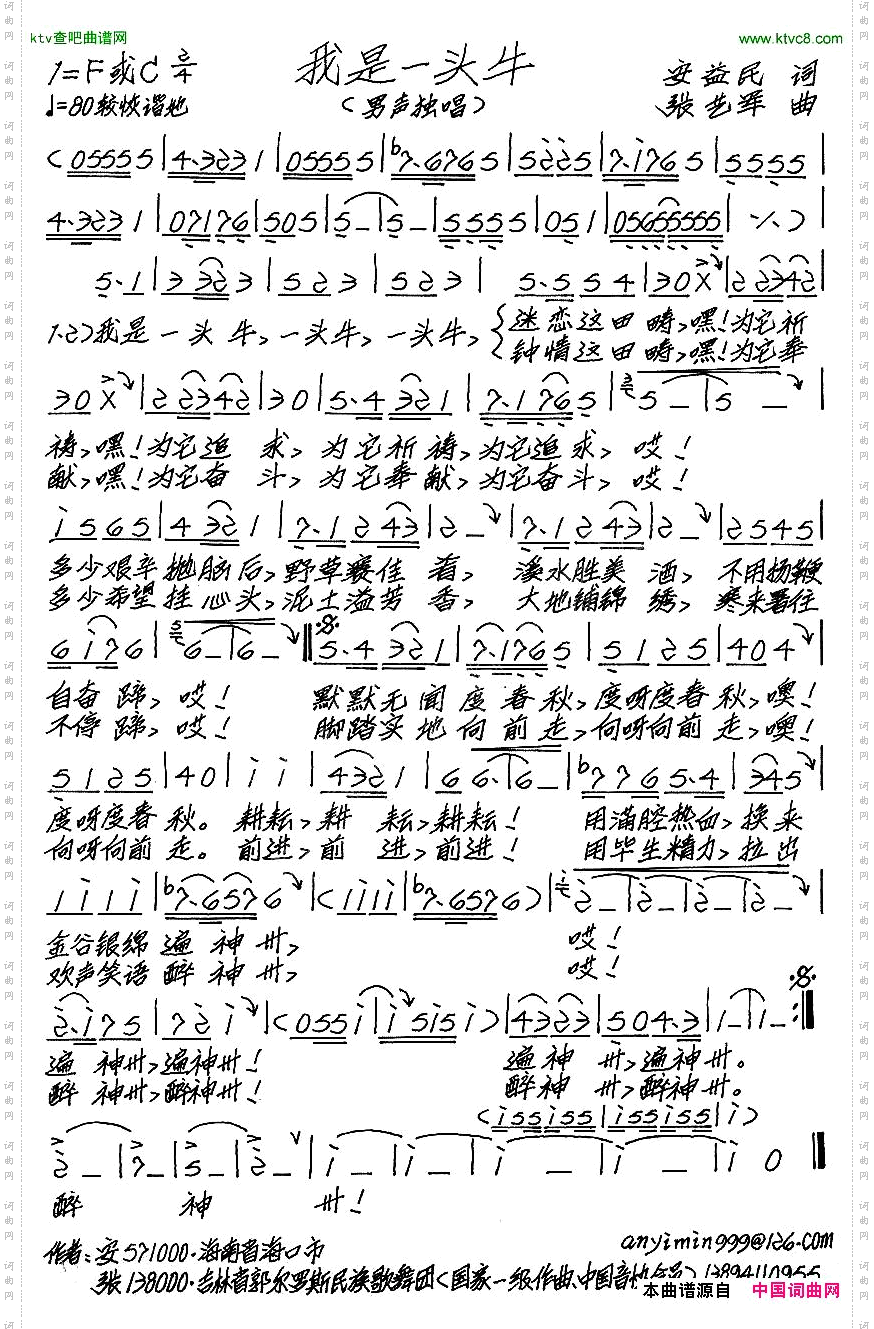 ktv查吧曲谱网
www.ktvc8.com
1=F或C 2/4
我是一头牛
安益民 词
♩=80较恢谐地
(男声独唱)
张艺军 曲
(05555|4·3231|05555|b7·6765|5225|7·1765|5555|
4·3231|07176|505|5–|5–|55555|051|05655555|·/·)|
5·1|3323|523|523|5·554|30X|22342|
1.2)我是一头牛,一头牛,一头牛,
迷恋这田畴,嘿!为它祈
钟情这田畴,嘿!为它奉
30X|22342|30|5·4321|7·1765|5–|5–|
祷,嘿!为它追求,为它祈祷,为它追求,哎!
献,嘿!为它奋斗,为它奉献,为它奋斗,哎!
i565|4321|7·1243|2–|7·1243|2–|2545|
多少艰辛抛脑后,野草裹佳肴,溪水胜美酒,不用扬鞭
多少希望挂心头,泥土溢芳香,大地铺锦绣,寒来暑往
6i76|6–|6–‖5·4321|7·1765|5125|404|
自奋蹄,哎!默默无闻度春秋,度呀度春秋,噢!
不停蹄,哎!脚踏实地向前走,向呀向前走,噢!
5125|40|ii|4321|66·|6–|b7765·4|345|
度呀度春秋。耕耘,耕耘,耕耘!用满腔热血,换来
向呀向前走。前进,前进,前进!用毕生精力,拉出
1i1i|b7·6576|(1i1i|b7·6576)|2–|2–|2–|2–|
金谷银绵遍神州,哎!
欢声笑语醉神州,哎!
2·i75|72i|(055i|i5i5i)|4323|504·3|1–|1–:‖
遍神州,遍神州!遍神州,遍神州。
醉神州,醉神州!醉神州,醉神州。
(i55i55|i55i55|i)
2–|7–|5–|2–|i–|i–|i–|i–|i0‖
醉神州!
作者:安571000·海南省海口市
anyimin999@126.com
张138000·吉林省郭尔罗斯民族歌舞团<国家一级作曲、中国音协会员>13894110955
本曲谱源自 中国词曲网